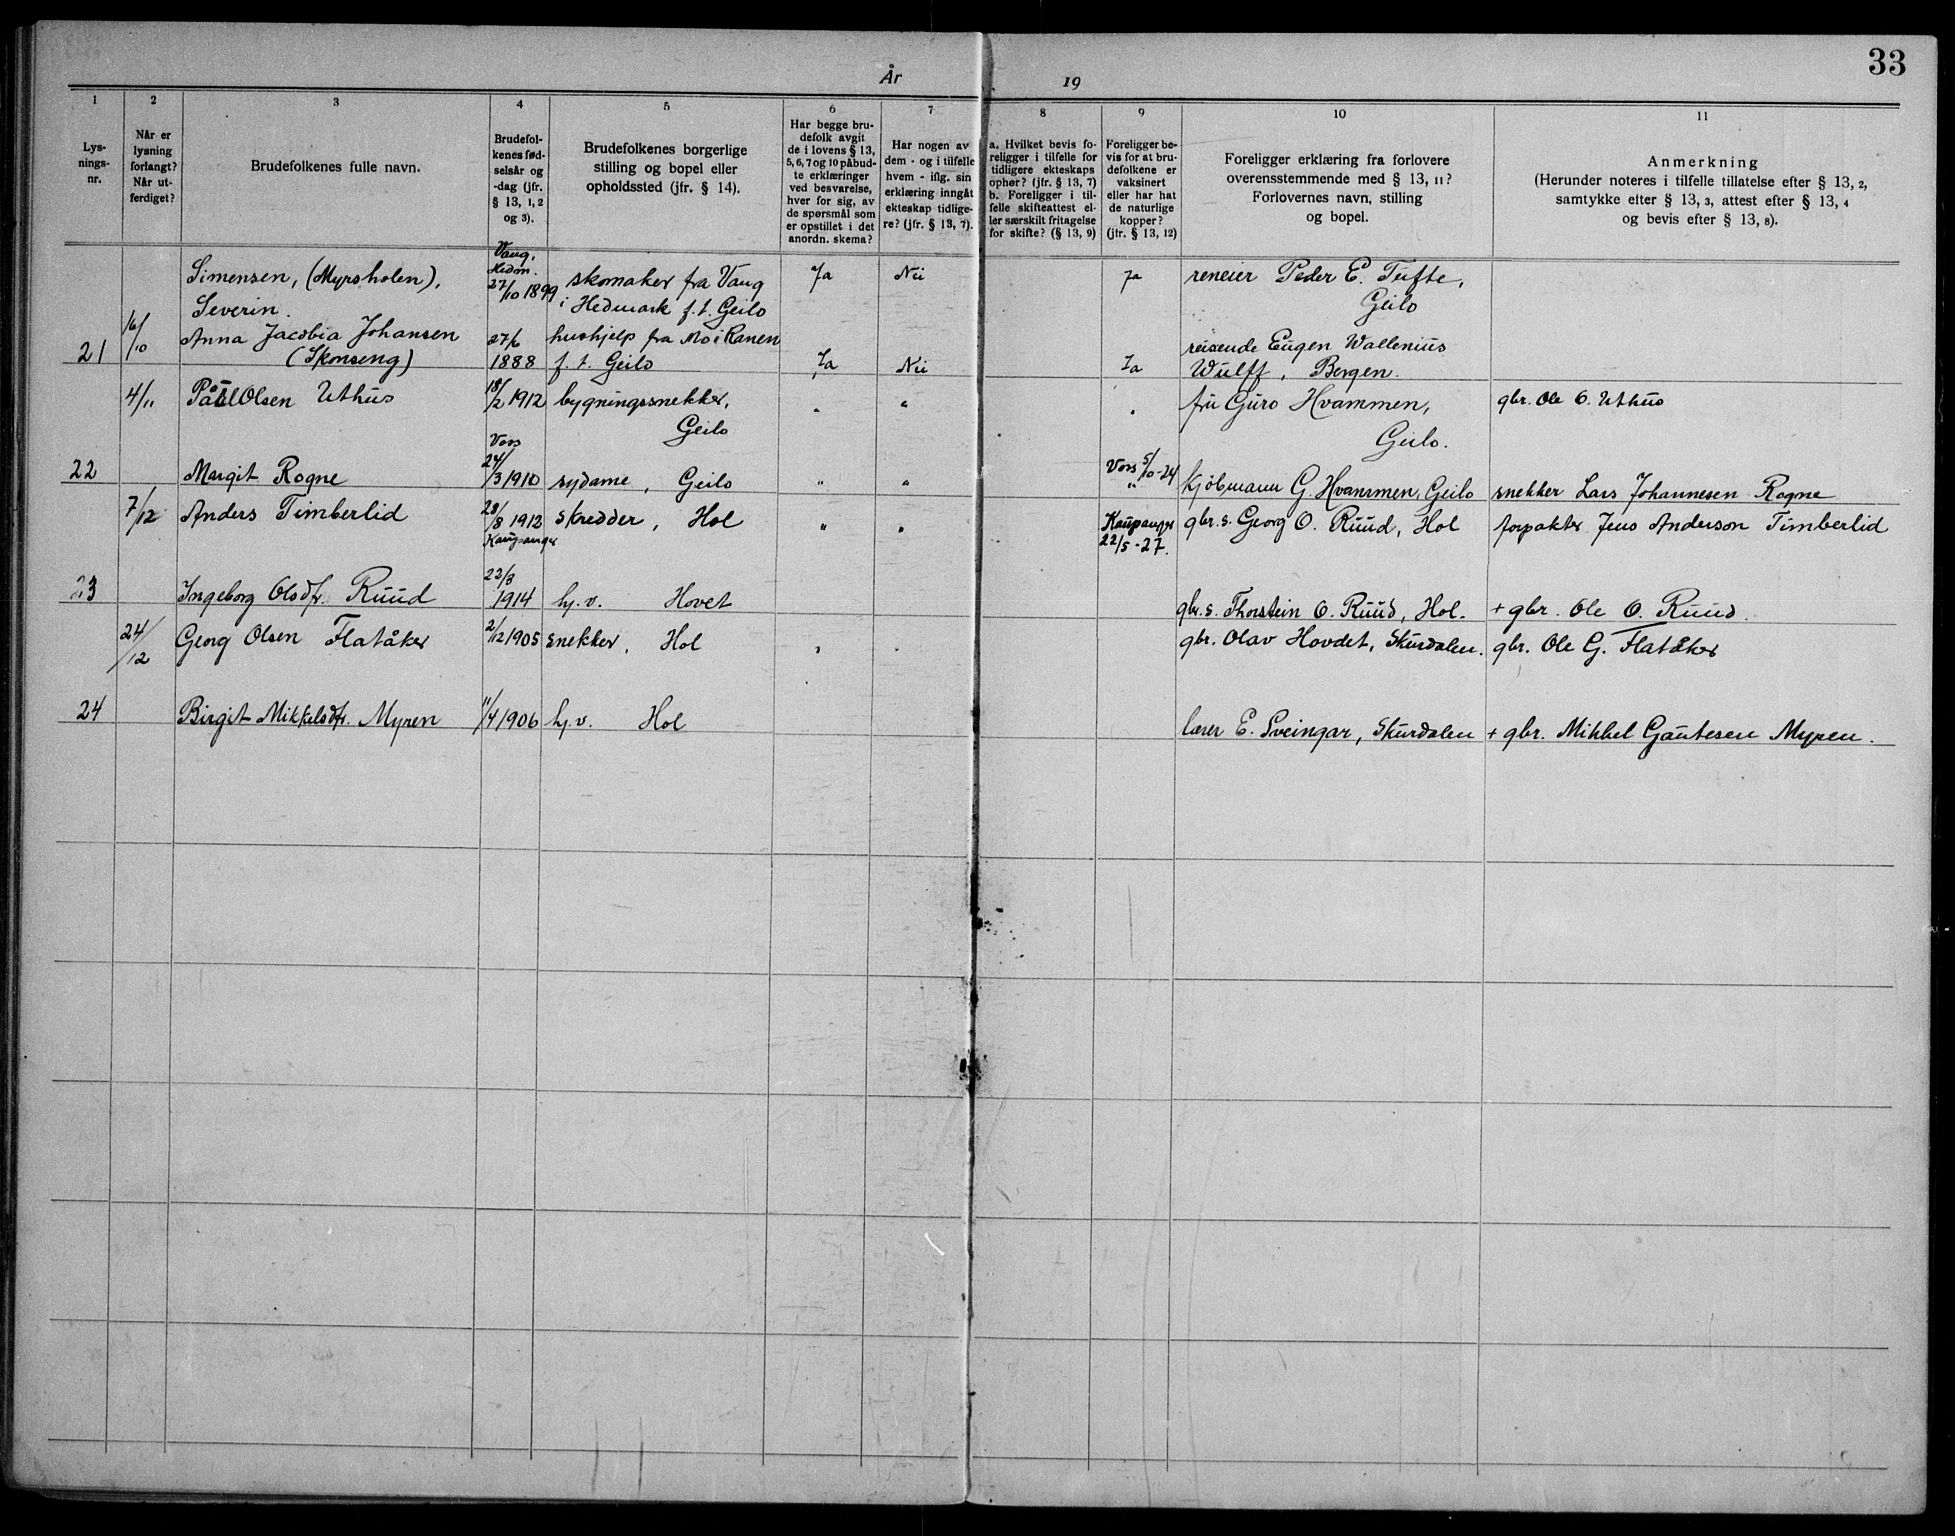 År 19
33
1 2 3 4 5 6 7 8 9 10 11
Lys-
nings-
nr.
Når er
lysning
forlangt?
Når ut-
ferdiget?
Brudefolkenes fulle navn.
Brudefol-
kenes fød-
selsår og
-dag (jfr.
§ 13, 1, 2
og 3).
Brudefolkenes borgerlige
stilling og bopel eller
opholdssted (jfr. § 14).
Har begge bru-
defolk avgit
de i lovens § 13,
5, 6, 7 og 10 påbud-
te erklæringer
ved besvarelse,
hver for sig, av
de spørsmål som
er opstillet i det
anordn. skema?
Har nogen av
dem - og i tilfelle
hvem - iflg. sin
erklæring inngått
ekteskap tidlige-
re? (jfr. § 13, 7).
a. Hvilket bevis fo-
religger i tilfelle for
tidligere ekteskaps
ophør? (jfr. § 13, 7)
b. Foreligger i til-
felle skifteattest el-
ler særskilt fritagelse
for skifte? (§ 13, 9)
Foreligger be-
vis for at bru-
defolkene er
vaksinert
eller har hat
de naturlige
kopper?
(jfr. § 13, 12)
Foreligger erklæring fra forlovere
overensstemmende med § 13, 11?
Forlovernes navn, stilling
og bopel.
Anmerkning
(Herunder noteres i tilfelle tillatelse efter § 13, 2,
samtykke efter § 13, 3, attest efter § 13, 4
og bevis efter § 13, 8).
21
16/10
Simensen, (Myrsholen),
Severin.
Vang,
Hedm.
27/10 1899
skomaker fra Vang
i Hedmark f. t. Geilo
Ja
Nei
Ja
Peder E. Tufte,
Geilo
Anna Jacobia Johansen
(Skonseng)
27/6
1888
hushjelp fra Mo i Ranen
f. t. Geilo
Ja
Nei
Ja
reisende Eugen Wallenius
Wulff, Bergen.
22
4/11
Pål Olsen Uthus
18/2 1912
bygningssnekker,
Geilo
"
"
"
fru Guro Hvammen,
Geilo.
gbr. Ole O. Uthus
Margit Rogne
Voss
24/3 1910
sydame, Geilo
"
"
Voss 5/10-24
"
Kjöbmann G. Hvammen, Geilo
snekker Lars Johannesen Rogne
23
7/12
Anders Timberlid
28/8 1912
Kaupanger
skredder, Hol
"
"
Kaupanger
22/5-27.
gbr. s. Georg O. Ruud, Hol
forpakter Jens Anderson Timberlid
Ingeborg Olsdtr. Ruud
22/3
1914
hj. v. Hovet
gbr. s. Thorstein O. Ruud, Hol.
+ gbr. Ole O. Ruud.
24
24/12
Georg Olsen Flatåker
2/12 1905
snekker, Hol
"
"
gbr. Olav Hovdet, Skurdalen.
gbr. Ole G. Flatåker
Birgit Mikkelsdtr. Myren
11/4 1906
hj. v. Hol
lærer E. Sveingar, Skurdalen
+ gbr. Mikkel Gautesen Myren.